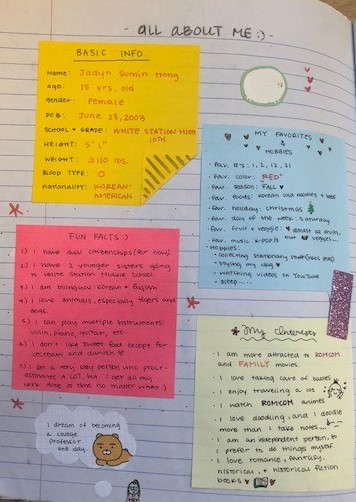 ALL ABOUT ME :)
BASIC INFO.
Name: Jadyn Sumin Hong
Age: 15 yrs. old
Gender: Female
DOB: June 23, 2003
SCHOOL + GRADE: WHITE STATION HIGH
10TH
HEIGHT: 5' 1"
WEIGHT: 110 lbs.
BLOOD TYPE: O
nationality: KOREAN-
AMERICAN
MY FAVORITES
&
HOBBIES
• fav. #'s: 1, 2, 12, 21
• fav. color: RED
• fav. season: FALL
• fav. foods: korean cold noodles +
• fav. holiday: christmas
• fav. day of the week: saturday
• fav. fruit + veggie: almost all fruit,
veggies
• fav. music: K-POP
• Hobbies:
- collecting stationery stuff
- styling my
- watching videos on YouTube
- sleep....
FUN FACTS :)
1.) I have dual citizenships (for now)
2.) I have 2 younger sisters going
to White Station Middle School
3.) I am bilingual: Korean + English
4.) I love animals, especially tigers and
dogs.
5.) I can play multiple instruments:
violin, piano, guitar, etc.
6.) I don't like sweet food except for
icecream and danish
7.) I am a very busy person who procr-
astinates A LOT, but I get all my
work done in time no matter what :)
I dream of becoming
a college
professor
one day.
My Interests
• I am more attracted to ROMCOM
and FAMILY movies.
• I love taking care of babies
• I enjoy traveling a lot
• I watch ROMCOM animes
• I love doodling, and I doodle
more than I take notes...
• I am an independent person, I
prefer to do things myself.
• I love romance, fantasy,
historical, + historical fiction
books